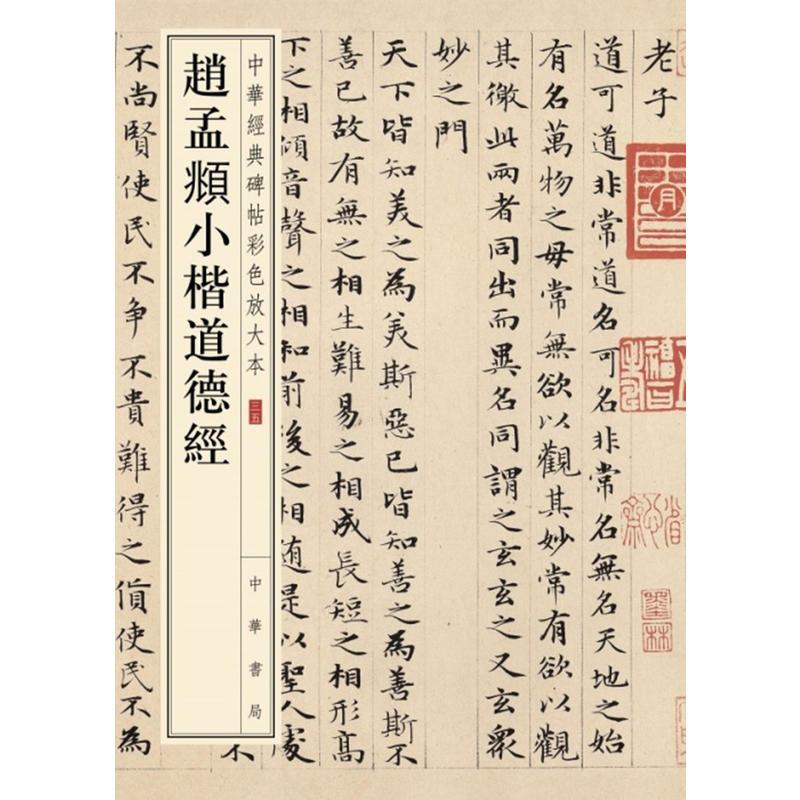 老子
道可道非常道名可名非常名無名天地之始
有名萬物之母常無欲以觀其妙常有欲以觀
其徼此兩者同出而異名同謂之玄玄之又玄衆
妙之門
天下皆知美之為美斯惡已皆知善之為善斯不
善已故有無之相生難易之相成長短之相形高
下之相傾音聲之相和前後之相随是以聖人處
中華經典碑帖彩色放大本 三五
中華書局
趙孟頫小楷道德經
不尚賢使民不争不貴難得之貨使民不為